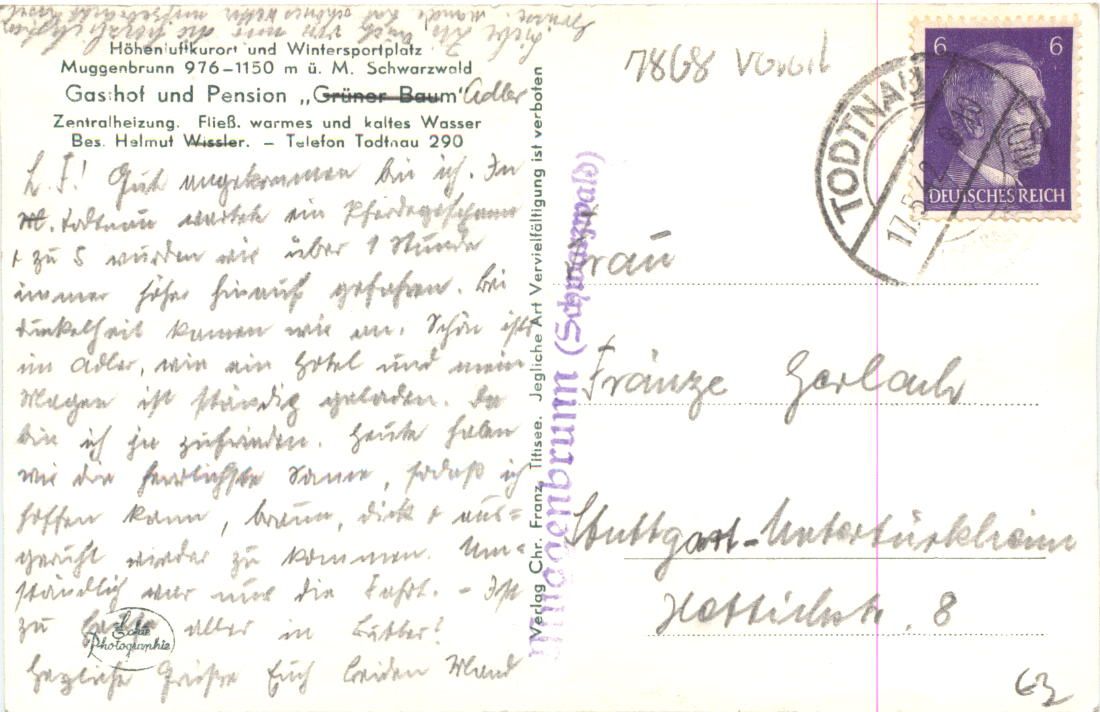 Höhenluftkurort und Wintersportplatz
Muggenbrunn 976-1150 m ü. M. Schwarzwald
Gasthof und Pension „Grüner Baum" Adler
Zentralheizung. Fließ. warmes und kaltes Wasser
Bes. Helmut Wissler. - Telefon Todtnau 290
L. F.! Gut angekommen bin ich. In
Todtnau wartete ein Pferdegespann
+ zu 5 wurden wir über 1 Stunde
immer höher hinauf gefahren. Bei
Dunkelheit kamen wir an. Schön ists
im Adler, wie ein Hotel und mein
Magen ist ständig geladen. Da
bin ich ja zufrieden. Heute haben
wir die herrlichste Sonne, sodaß ich
hoffen kann, braun, dick + aus=
geruht wieder zu kommen. Um=
ständlich war nur die Fahrt. - Ist
zu alles in Butter?
Herzliche Grüße Euch beiden
Echte
Photographie
Verlag Chr. Franz, Titisee. Jegliche Art Vervielfältigung ist verboten
Muggenbrunn (Schwarzwald)
7868
TODTNAU
17.5.42
6 6
DEUTSCHES REICH
Frau
Fränze Gerlach
Stuttgart-Untertürkheim
8
63